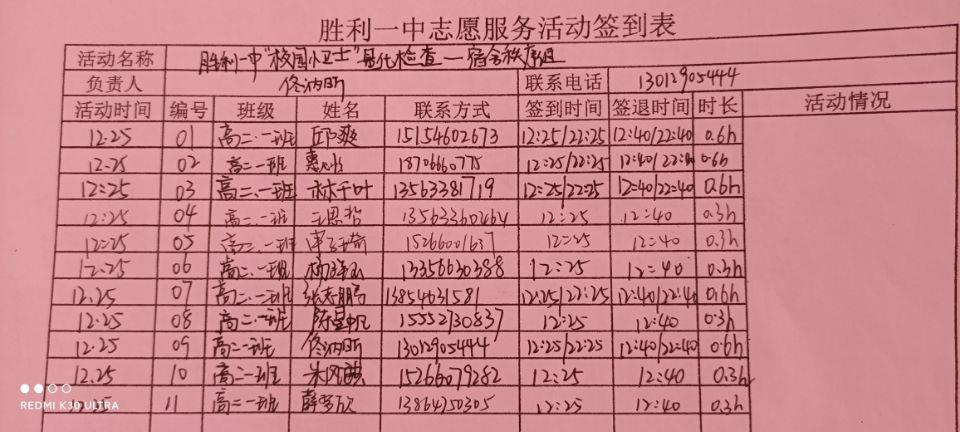 胜利一中志愿服务活动签到表
活动名称 胜利一中"校园小卫士"量化检查—宿舍秩序组
负责人 佟汭昕 联系电话 13012905444
活动时间 编号 班级 姓名 联系方式 签到时间 签退时间 时长 活动情况
12.25 01 高二.一班 邱爽 15154602673 12:25/22:25 12:40/22:40 0.6h
12.25 02 高二一班 18706660775 12:25/22:25 12:40/22:40 0.6h
12:25 03 高二.一班 林千叶 13563381719 12:25/22:25 12:40/22:40 0.6h
12:25 04 高二.一班 王思哲 13563360464 12:25 12:40 0.3h
12:25 05 高二.一班 15266001637 12:25 12:40 0.3h
12.25 06 高二.一班 13356630388 12:25 12:40 0.3h
12.25 07 高二.一班 张志鹏 13854631581 12:25/22:25 12:40/22:40 0.6h
12.25 08 高二.一班 15552730837 12:25 12:40 0.3h
12.25 09 高二一班 佟汭昕 13012905444 12:25/22:25 12:40/22:40 0.6h
12.25 10 高二一班 15266079282 12:25 12:40 0.3h
12.25 11 高二一班 13864750305 12:25 12:40 0.3h
REDMI K30 ULTRA